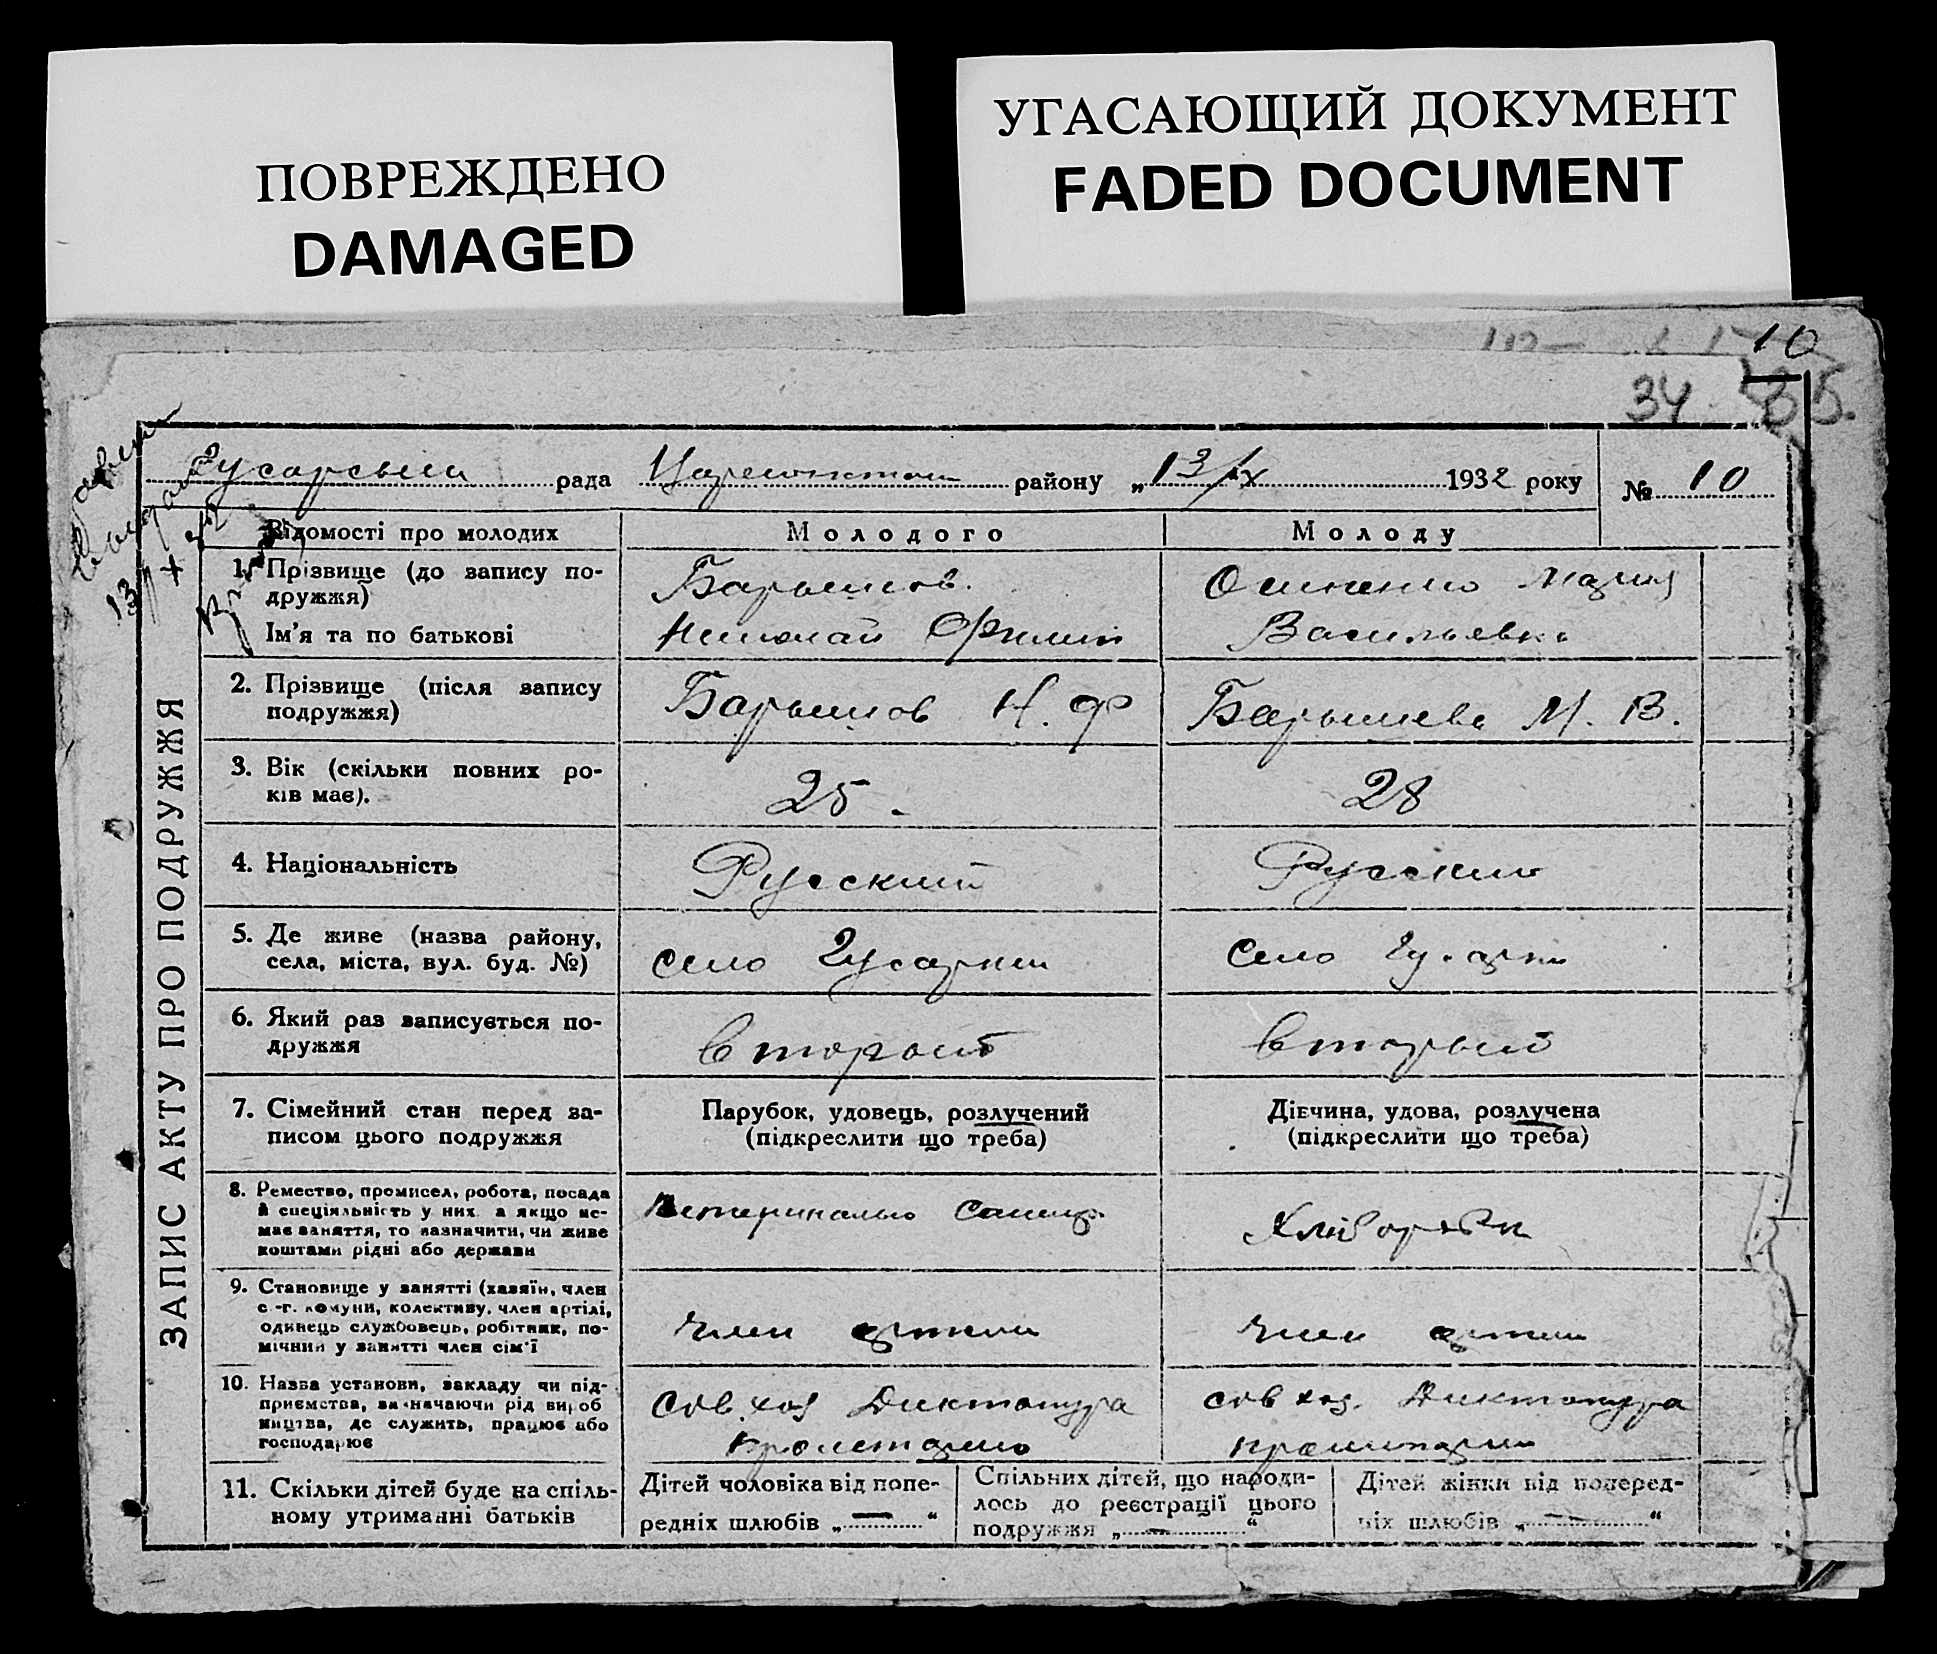 ПОВРЕЖДЕНО
DAMAGED
УГАСАЮЩИЙ ДОКУМЕНТ
FADED DOCUMENT
10
34
рада района району „13/IX 1932 року № 10
ЗАПИС АКТУ ПРО ПОДРУЖЖЯ
Відомості про молодих
Молодого
Молоду
1. Прізвище (до запису по-
дружжя)
Ім'я та по батькові
Барышов.
Николай Филип
Мария
Васильевна
2. Прізвище (після запису
подружжя)
Барышов Н. Ф
Барышева М. В.
3. Вік (скільки повних ро-
ків має).
25.
28
4. Національність
Русский
Русский
5. Де живе (назва району,
села, міста, вул. буд. №)
село Гусарки
село Гусарки
6. Який раз записується по-
дружжя
второй
вторый
7. Сімейний стан перед за-
писом цього подружжя
Парубок, удовець, розлучений
(підкреслити що треба)
Дівчина, удова, розлучена
(підкреслити що треба)
8. Ремество, промисел, робота, посада
й спеціяльність у них, а якщо не-
має заняття, то зазначити, чи живе
коштами рідні або держави
Хліборобка
9. Становище у занятті (хазяїн, член
с.-г. комуни, колективу, член артілі,
одинець службовець, робітник, по-
мічний у занятті член сім'ї
член артели
член артели
10. Назва установи, закладу чи під-
приємства, зазначаючи рід вироб
ництва, де служить, працює або
господарює
Сов.хоз Диктатура
пролетарио
сов хоз. Диктатура
11. Скільки дітей буде на спіль-
ному утриманні батьків
Дітей чоловіка від попе-
редніх шлюбів „—“
Спільних дітей, що народи-
лось до реєстрації цього
подружжя „—“
Дітей жінки від поперед-
ніх шлюбів „—“